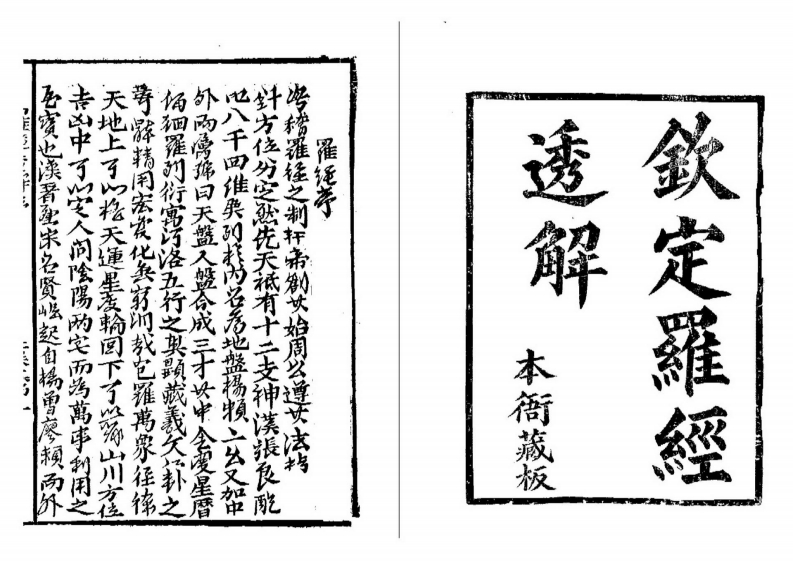 欽定羅經
透解
本衙藏板
羅經序
稽羅經之制軒帝創其始周公遵其法指
針方位分定然先天秪有十二支神漢張良配
以八干四維列於內名為地盤楊賴二公又加中
外兩層號曰天盤人盤合成三才其中金度星曆
羅列衍寓河洛五行之奧顯藏羲文卦之
辭精用宏變化無窮洵哉包羅萬象徑緯
天地上可以格天運星度輪回下可以察山川方位
吉凶中可以定人間陰陽兩宅而為萬事利用之
至寶也漢晋至宋名賢崛起自楊曾廖賴而外